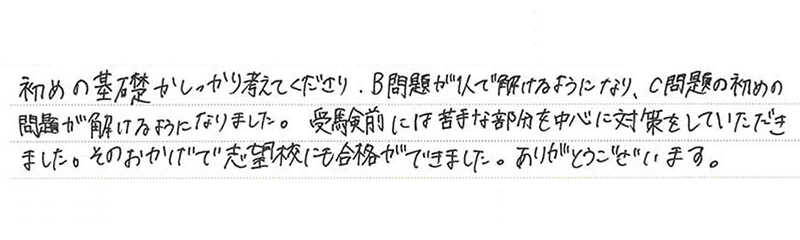 初めの基礎からしっかり考えてくださり、B問題が1人で解けるようになり、C問題の初めの
問題が解けるようになりました。受験前には苦手な部分を中心に対策をしていただき
ました。そのおかげで志望校にも合格ができました。ありがとうございます。